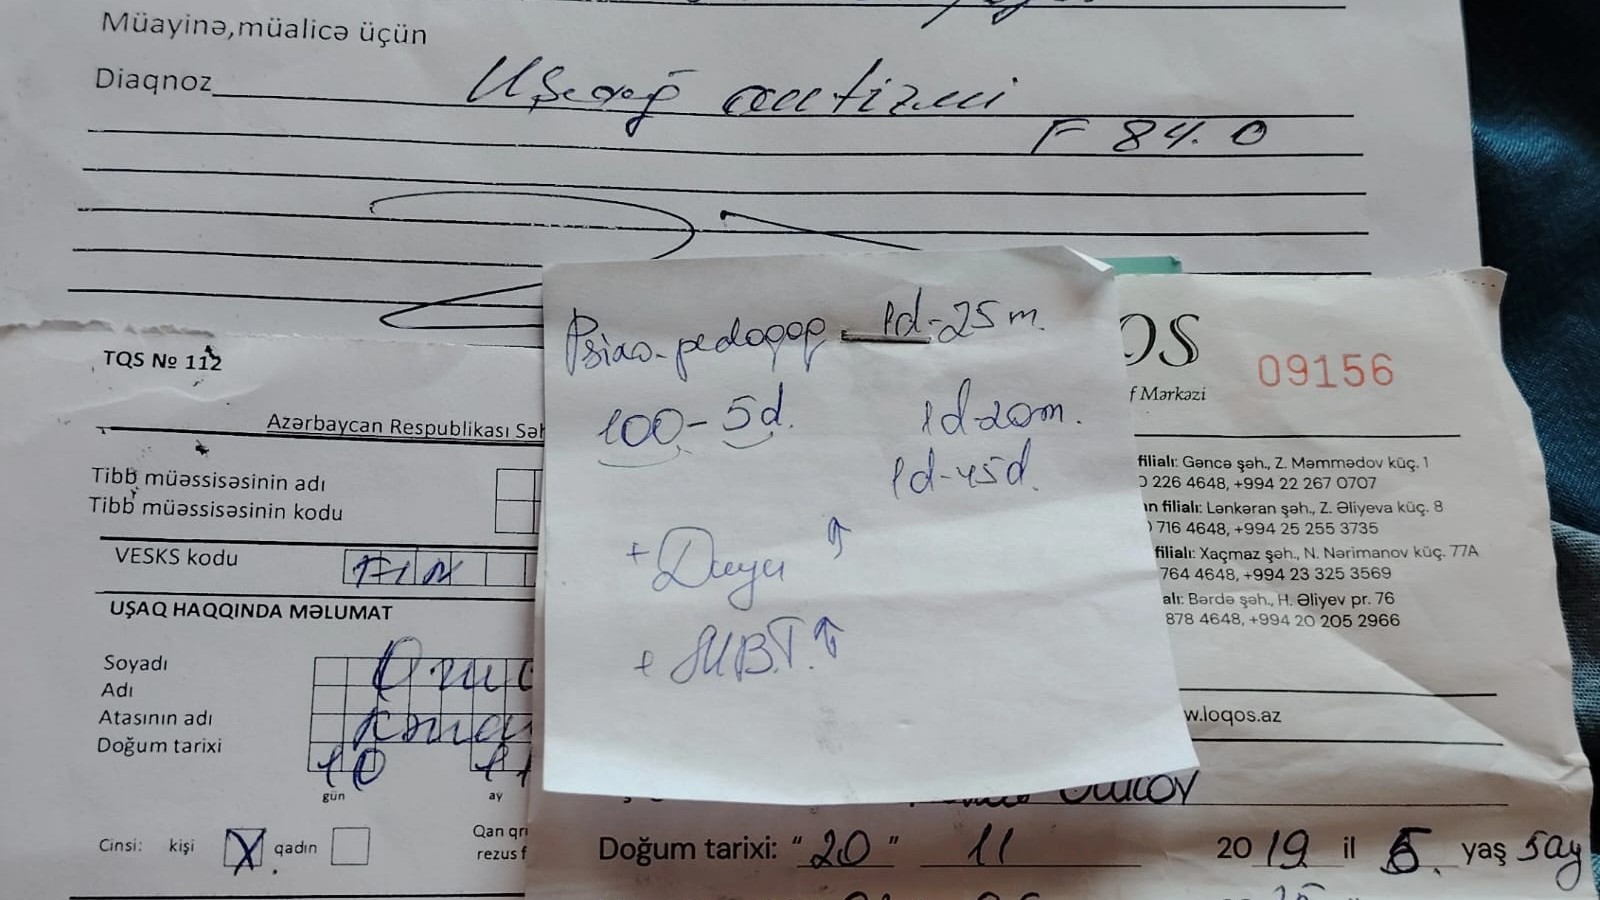 Müayinə,müalicə üçün
Diaqnoz Uşaq autizmi
F 84.0
Psixo-pedaqoq 1d-25m.
100-5d. 1d-20m.
1d-45d.
+ Duyu ↑
+
TQS № 112
Azərbaycan Respublikası Səh
Tibb müəssisəsinin adı
Tibb müəssisəsinin kodu
VESKS kodu
UŞAQ HAQQINDA MƏLUMAT
Soyadı
Adı
Atasının adı
Doğum tarixi 10
gün ay
Cinsi: kişi X qadın
Qan qr
rezus f
OS 09156
f Mərkəzi
filialı: Gəncə şəh., Z. Məmmədov küç. 1
0 226 4648, +994 22 267 0707
n filialı: Lənkəran şəh., Z. Əliyeva küç. 8
) 716 4648, +994 25 255 3735
filialı: Xaçmaz şəh., N. Nərimanov küç. 77A
764 4648, +994 23 325 3569
alı: Bərdə şəh., H. Əliyev pr. 76
878 4648, +994 20 205 2966
w.loqos.az
Doğum tarixi: "20" 11 2019 il 5. yaş